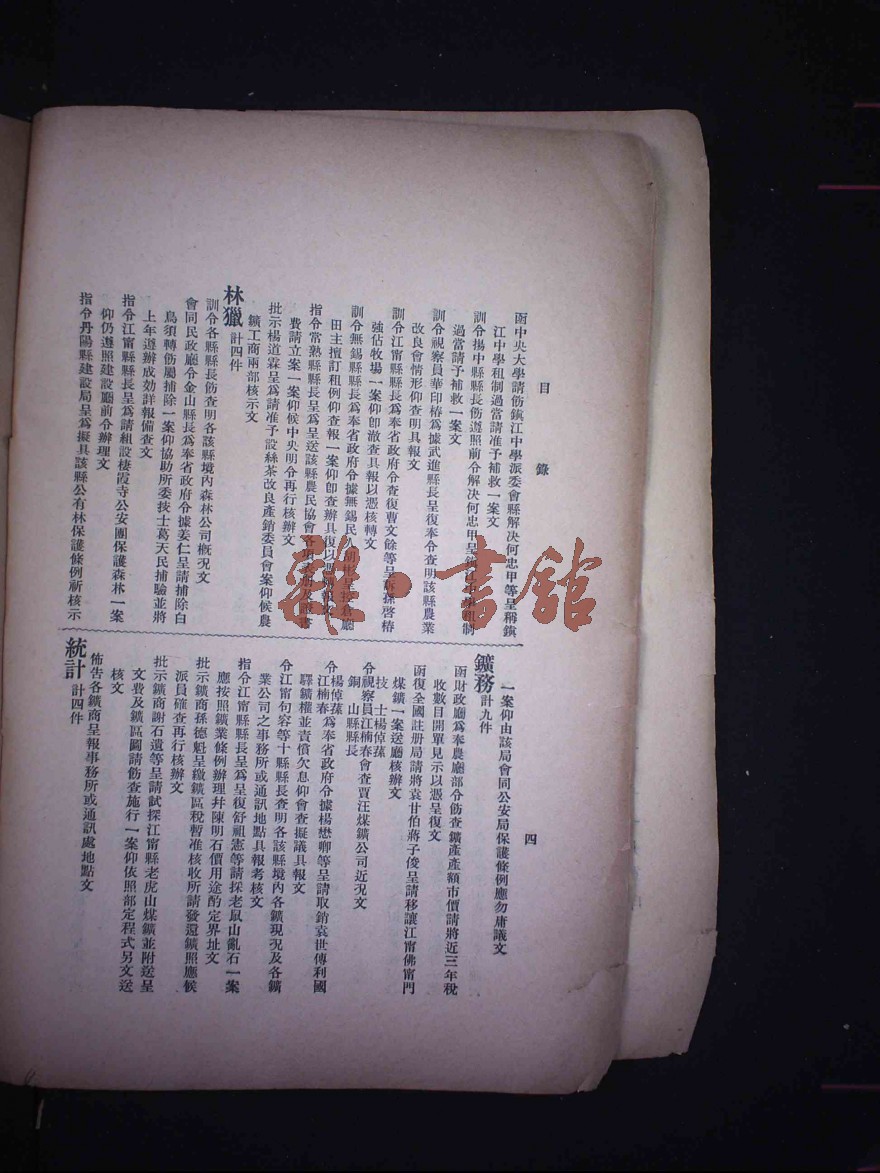 目錄
四
函中央大學請飭鎮江中學派委會縣解決何忠甲等呈稱鎮
江中學租制過當請予補救一案文
訓令揚中縣縣長飭遵照前令解決何忠甲呈稱江中學租制
過當請予補救一案文
訓令視察員華印椿為據武進縣長呈復奉令查明該縣農業
改良會情形仰查明具報文
訓令江甯縣縣長為奉省政府令查復曹文餘等呈訴孫啓椿
強佔牧場一案仰卽澈查具報以憑核轉文
訓令無錫縣縣長為奉省政府令據無錫民
田主擅訂租例仰查報一案仰卽查辦具復以
指令常熟縣縣長呈為呈送該縣農民協會各項
費請立案一案仰候中央明令再行核辦文
批示楊道霖呈為請准予設絲茶改良產銷委員會案仰候農
鑛工商兩部核示文
林獵 計四件
訓令各縣縣長飭查明各該縣境內森林公司概況文
會同民政廳令金山縣長為奉省政府令據姜仁呈請捕除白
鳥須轉飭屬捕除一案仰協助所委技士葛天民捕驗並將
上年遵辦成効詳報備查文
指令江甯縣縣長呈為請組設棲霞寺公安團保護森林一案
仰仍遵照建設廳前令辦理文
指令丹陽縣建設局呈為擬具該縣公有林保護條例祈核示
一案仰由該局會同公安局保護條例應勿庸議文
鑛務 計九件
函財政廳為奉農廳部令飭查鑛產產額市價請將近三年稅
收數目開單見示以憑呈復文
函復全國註册局請將袁甘伯蔣子俊呈請移讓江甯佛甯門
煤鑛一案送廳核辦文
技士楊倬蓀
令視察員江楠春會查賈汪煤鑛公司近況文
銅山縣縣長
令楊倬蓀
令江楠春為奉省政府令據楊懋卿等呈請取銷袁世傳利國
驛鑛權並責償欠息仰會查擬議具報文
令江甯句容等十縣縣長查明各該縣境內各鑛現況及各鑛
業公司之事務所或通訊地點具報考核文
指令江甯縣縣長呈為呈復舒祖憲等請採老鼠山亂石一案
應按照鑛業條例辦理幷陳明石價用途酌定界址文
批示鑛商孫德魁呈繳鑛區稅暫准核收所請發還鑛照應候
派員確查再行核辦文
批示鑛商謝石遺等呈請試探江甯縣老虎山煤鑛並附送呈
文費及鑛區圖請飭查施行一案仰依照部定程式另文送
核文
佈告各鑛商呈報事務所或通訊處地點文
統計 計四件
雜·書館